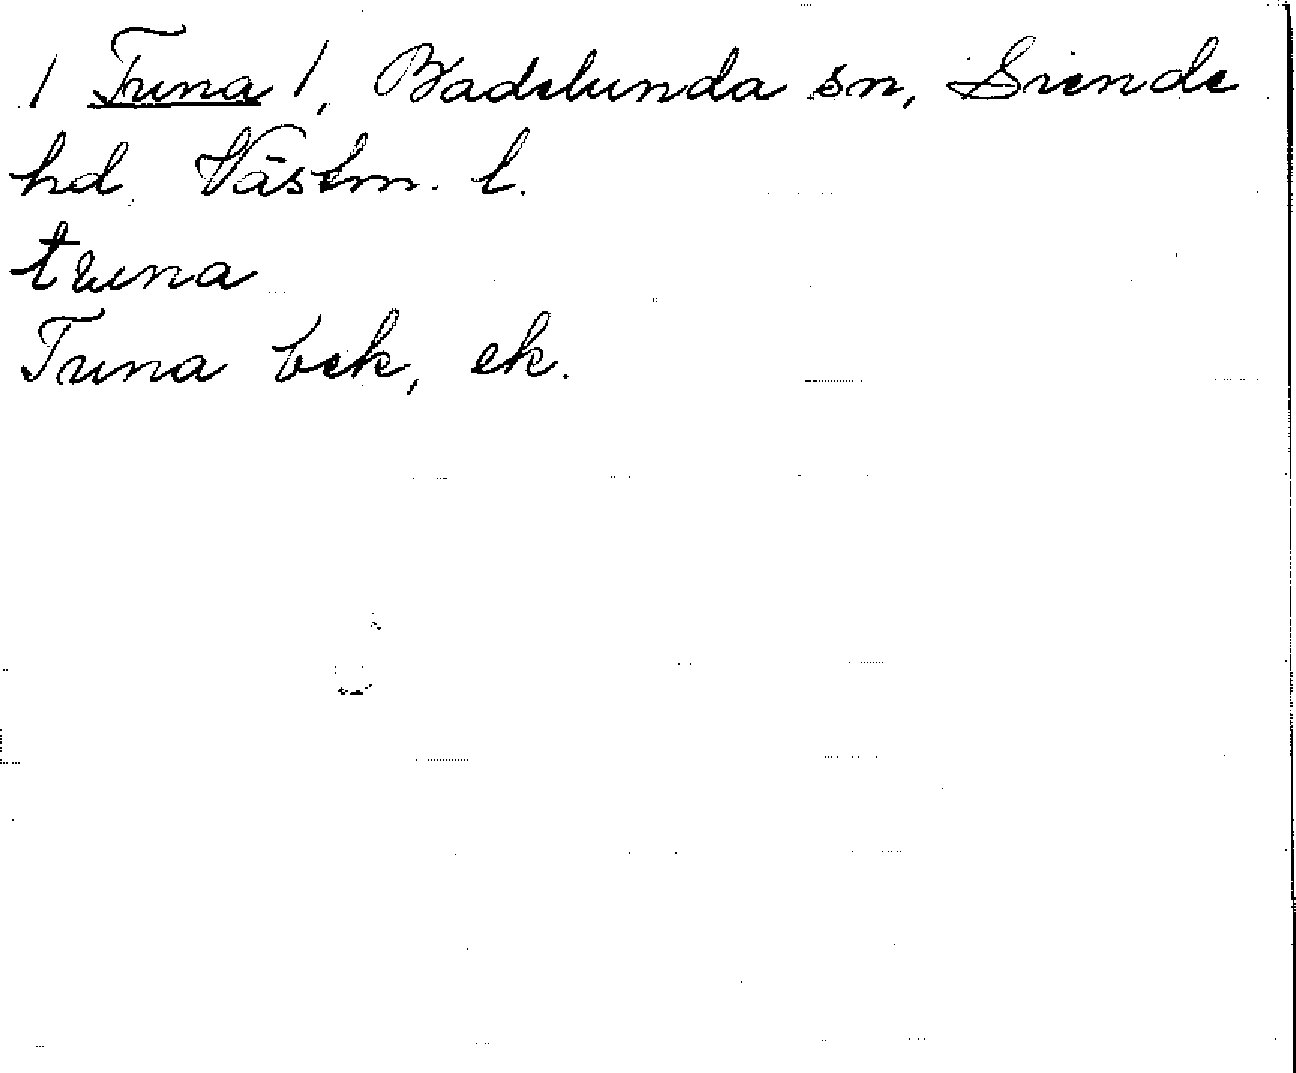 / Tuna /, Badelunda sn, Siende
hd. Västm. l.
tuna
Tuna bek, ek.